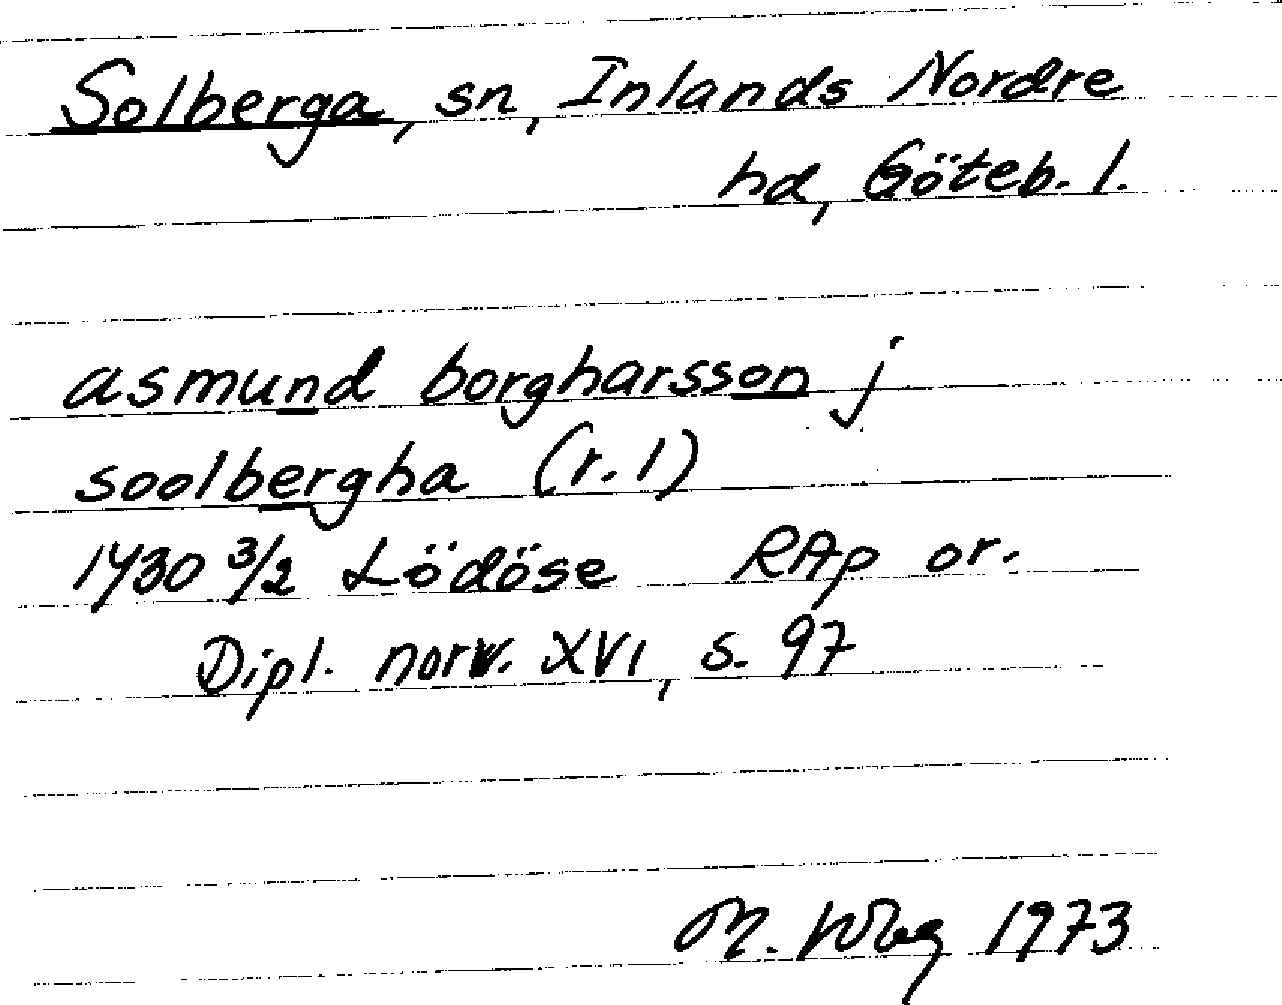 Solberga, sn, Inlands Nordre
hd, Göteb. l.
asmund borgharsson j
soolbergha (r. 1)
1430 3/2 Lödöse RAp or.
Dipl. norv. XVI, s. 97
M. 1973